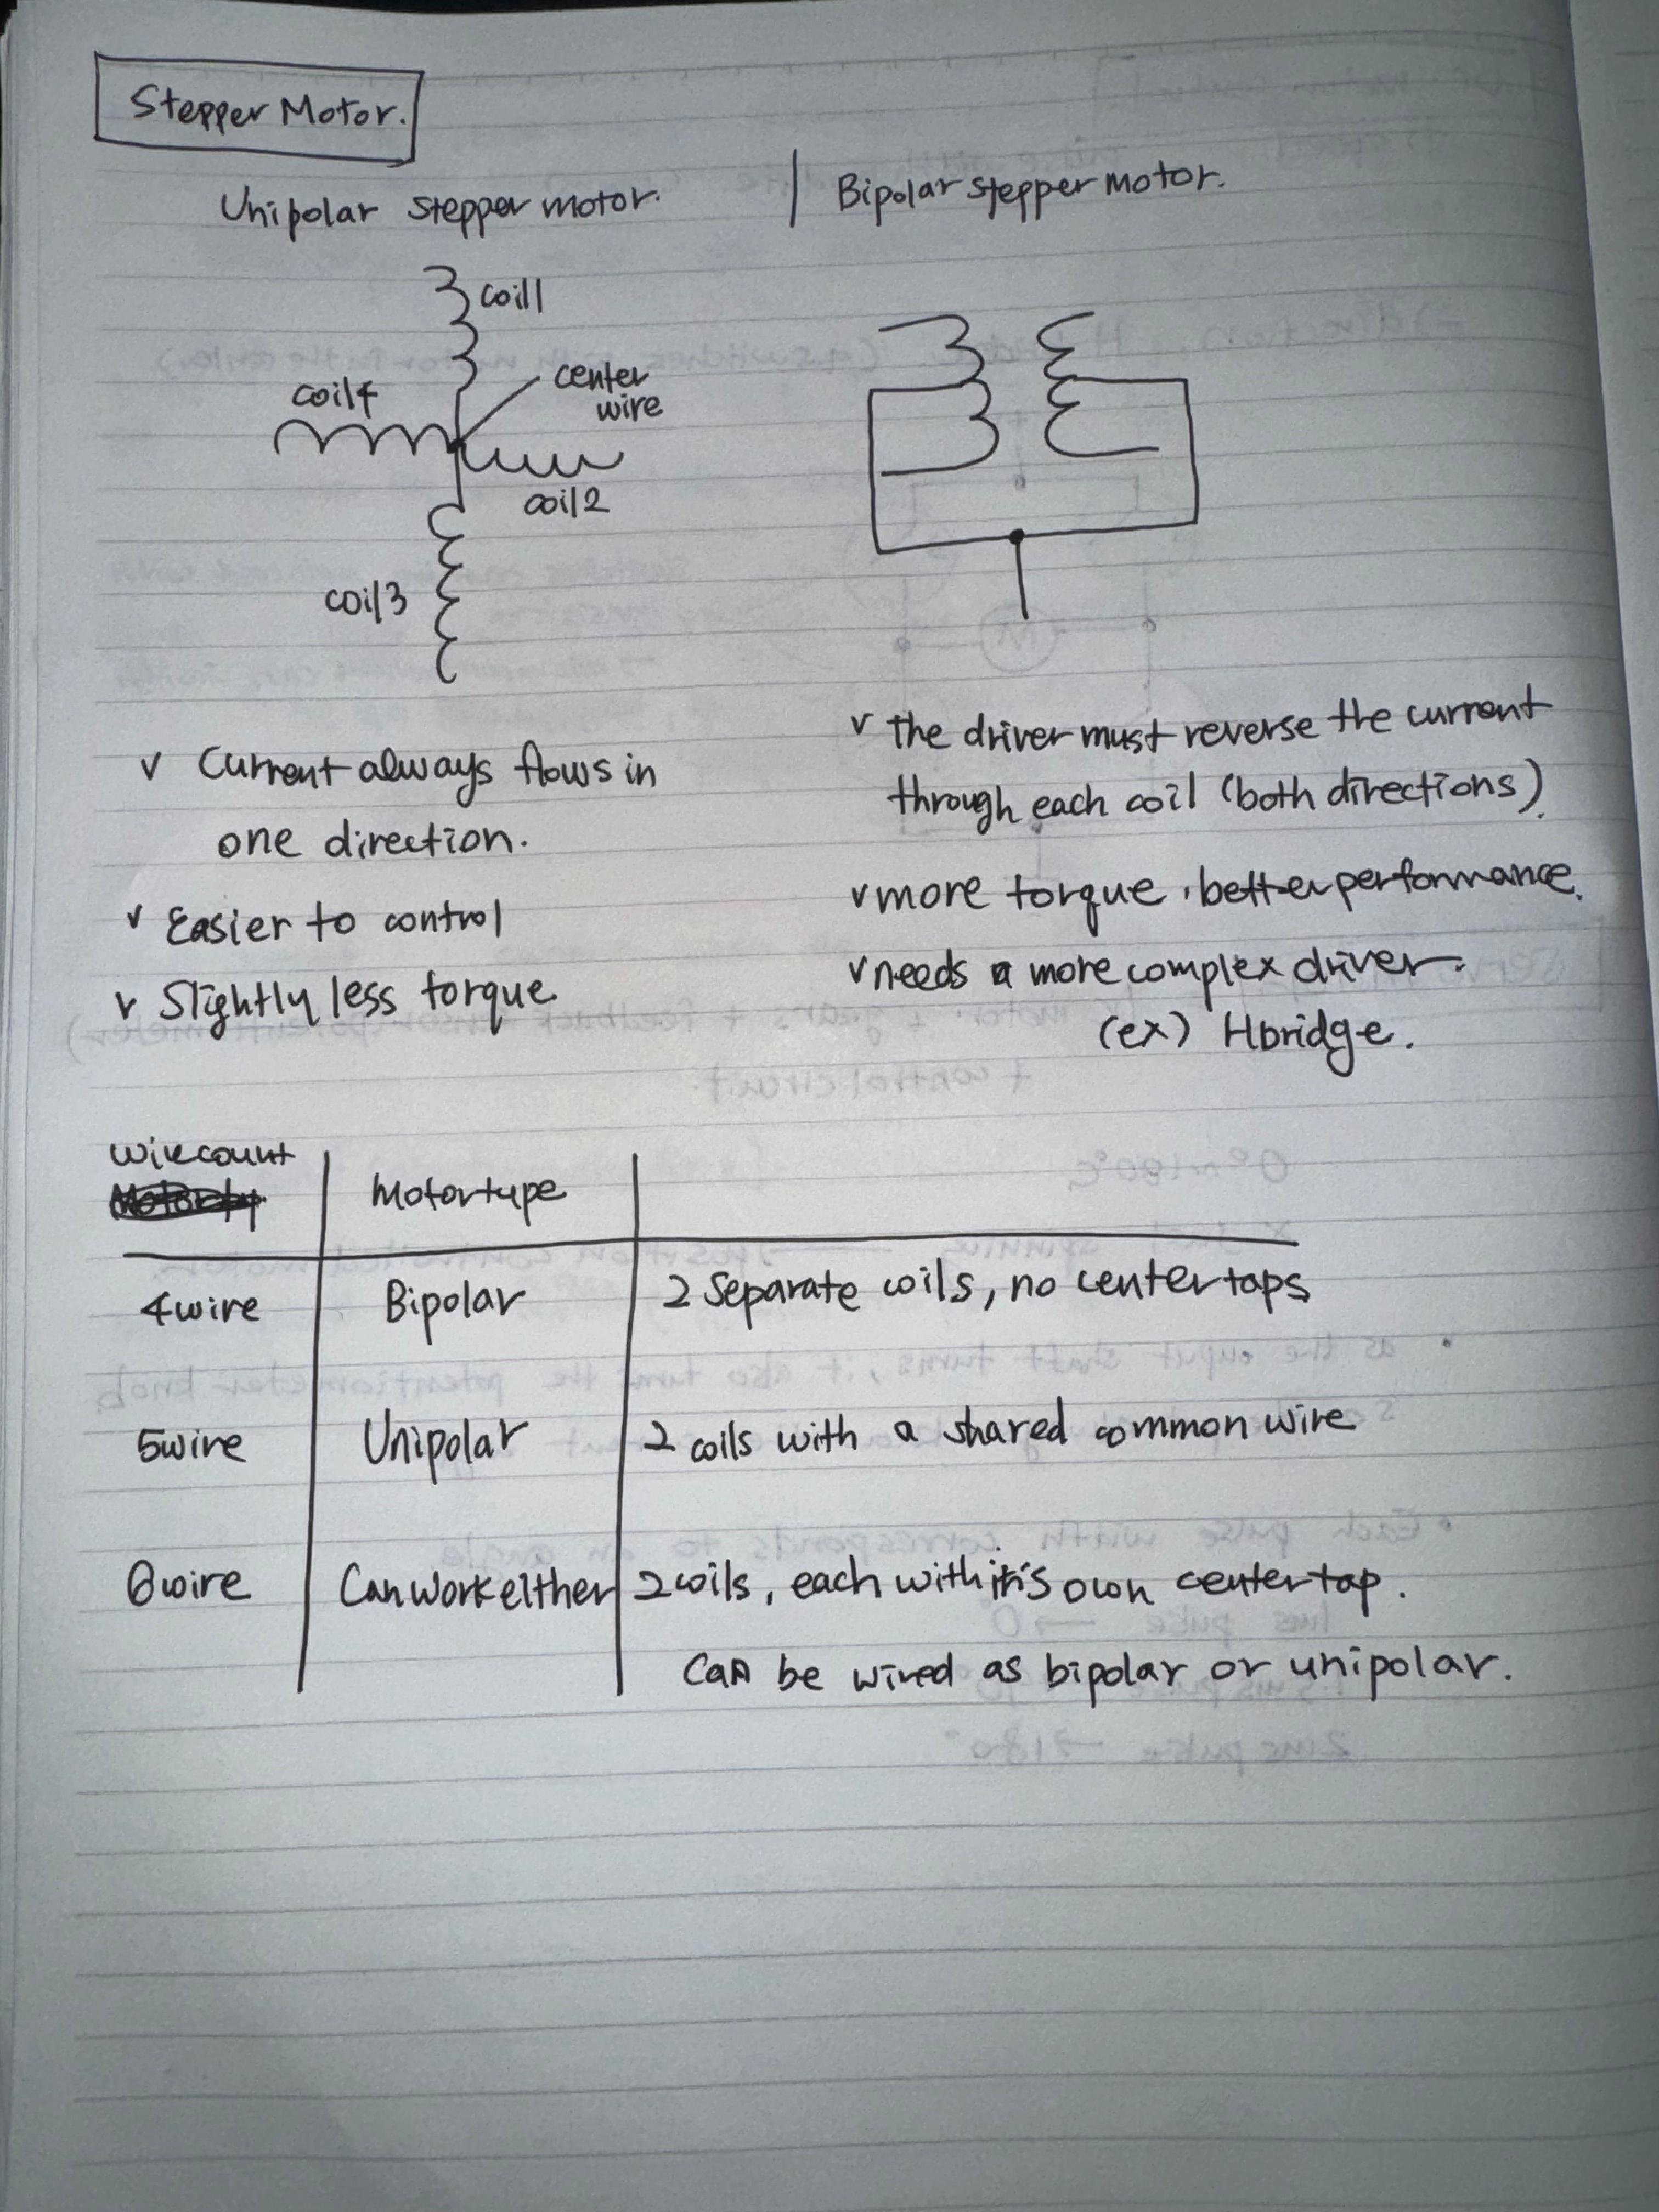 Stepper Motor.
Unipolar stepper motor. | Bipolar stepper motor.
coil1
center
wire
coil4
coil2
coil3
v Current always flows in
one direction.
v Easier to control
v Slightly less torque
v the driver must reverse the current
through each coil (both directions).
v more torque, better performance.
v needs a more complex driver.
(ex) Hbridge.
wirecount | Motortype
4wire | Bipolar | 2 Separate coils, no center taps
5wire | Unipolar | 2 coils with a shared common wire
6wire | Can work either | 2 coils, each with it's own center tap.
Can be wired as bipolar or unipolar.